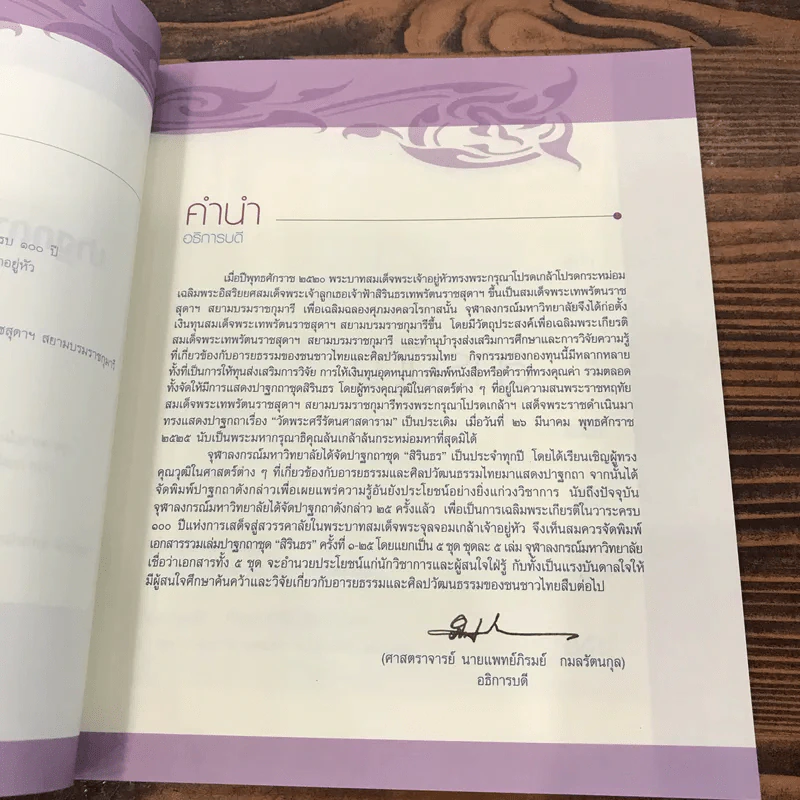 รบ ๑๐๐ ปี
าอยู่หัว
ชสุดาฯ สยามบรมราชกุมารี
คำนำ
อธิการบดี
เมื่อปีพุทธศักราช ๒๕๒๐ พระบาทสมเด็จพระเจ้าอยู่หัวทรงพระกรุณาโปรดเกล้าโปรดกระหม่อม
เฉลิมพระอิสริยยศสมเด็จพระเจ้าลูกเธอเจ้าฟ้าสิรินธรเทพรัตนราชสุดาฯ ขึ้นเป็นสมเด็จพระเทพรัตนราช
สุดาฯ สยามบรมราชกุมารี เพื่อเฉลิมฉลองศุภมงคลวโรกาสนั้น จุฬาลงกรณ์มหาวิทยาลัยจึงได้ก่อตั้ง
เงินทุนสมเด็จพระเทพรัตนราชสุดาฯ สยามบรมราชกุมารีขึ้น โดยมีวัตถุประสงค์เพื่อเฉลิมพระเกียรติ
สมเด็จพระเทพรัตนราชสุดาฯ สยามบรมราชกุมารี และทำนุบำรุงส่งเสริมการศึกษาและการวิจัยความรู้
ที่เกี่ยวข้องกับอารยธรรมของชนชาวไทยและศิลปวัฒนธรรมไทย กิจกรรมของกองทุนนี้มีหลากหลาย
ทั้งที่เป็นการให้ทุนส่งเสริมการวิจัย การให้เงินทุนอุดหนุนการพิมพ์หนังสือหรือตำราที่ทรงคุณค่า รวมตลอด
ทั้งจัดให้มีการแสดงปาฐกถาชุดสิรินธร โดยผู้ทรงคุณวุฒิในศาสตร์ต่าง ๆ ที่อยู่ในความสนพระราชหฤทัย
สมเด็จพระเทพรัตนราชสุดาฯ สยามบรมราชกุมารีทรงพระกรุณาโปรดเกล้าฯ เสด็จพระราชดำเนินมา
ทรงแสดงปาฐกถาเรื่อง "วัดพระศรีรัตนศาสดาราม" เป็นประเดิม เมื่อวันที่ ๒๖ มีนาคม พุทธศักราช
๒๕๒๕ นับเป็นพระมหากรุณาธิคุณล้นเกล้าล้นกระหม่อมหาที่สุดมิได้
จุฬาลงกรณ์มหาวิทยาลัยได้จัดปาฐกถาชุด "สิรินธร" เป็นประจำทุกปี โดยได้เรียนเชิญผู้ทรง
คุณวุฒิในศาสตร์ต่าง ๆ ที่เกี่ยวข้องกับอารยธรรมและศิลปวัฒนธรรมไทยมาแสดงปาฐกถา จากนั้นได้
จัดพิมพ์ปาฐกถาดังกล่าวเพื่อเผยแพร่ความรู้อันยังประโยชน์อย่างยิ่งแก่วงวิชาการ นับถึงปัจจุบัน
จุฬาลงกรณ์มหาวิทยาลัยได้จัดปาฐกถาดังกล่าว ๒๕ ครั้งแล้ว เพื่อเป็นการเฉลิมพระเกียรติในวาระครบ
๑๐๐ ปีแห่งการเสด็จสู่สวรรคาลัยในพระบาทสมเด็จพระจุลจอมเกล้าเจ้าอยู่หัว จึงเห็นสมควรจัดพิมพ์
เอกสารรวมเล่มปาฐกถาชุด "สิรินธร" ครั้งที่ ๑-๒๕ โดยแยกเป็น ๕ ชุด ชุดละ ๕ เล่ม จุฬาลงกรณ์มหาวิทยาลัย
เชื่อว่าเอกสารทั้ง ๕ ชุด จะอำนวยประโยชน์แก่นักวิชาการและผู้สนใจใฝ่รู้ กับทั้งเป็นแรงบันดาลใจให้
มีผู้สนใจศึกษาค้นคว้าและวิจัยเกี่ยวกับอารยธรรมและศิลปวัฒนธรรมของชนชาวไทยสืบต่อไป
(ศาสตราจารย์ นายแพทย์ภิรมย์ กมลรัตนกุล)
อธิการบดี